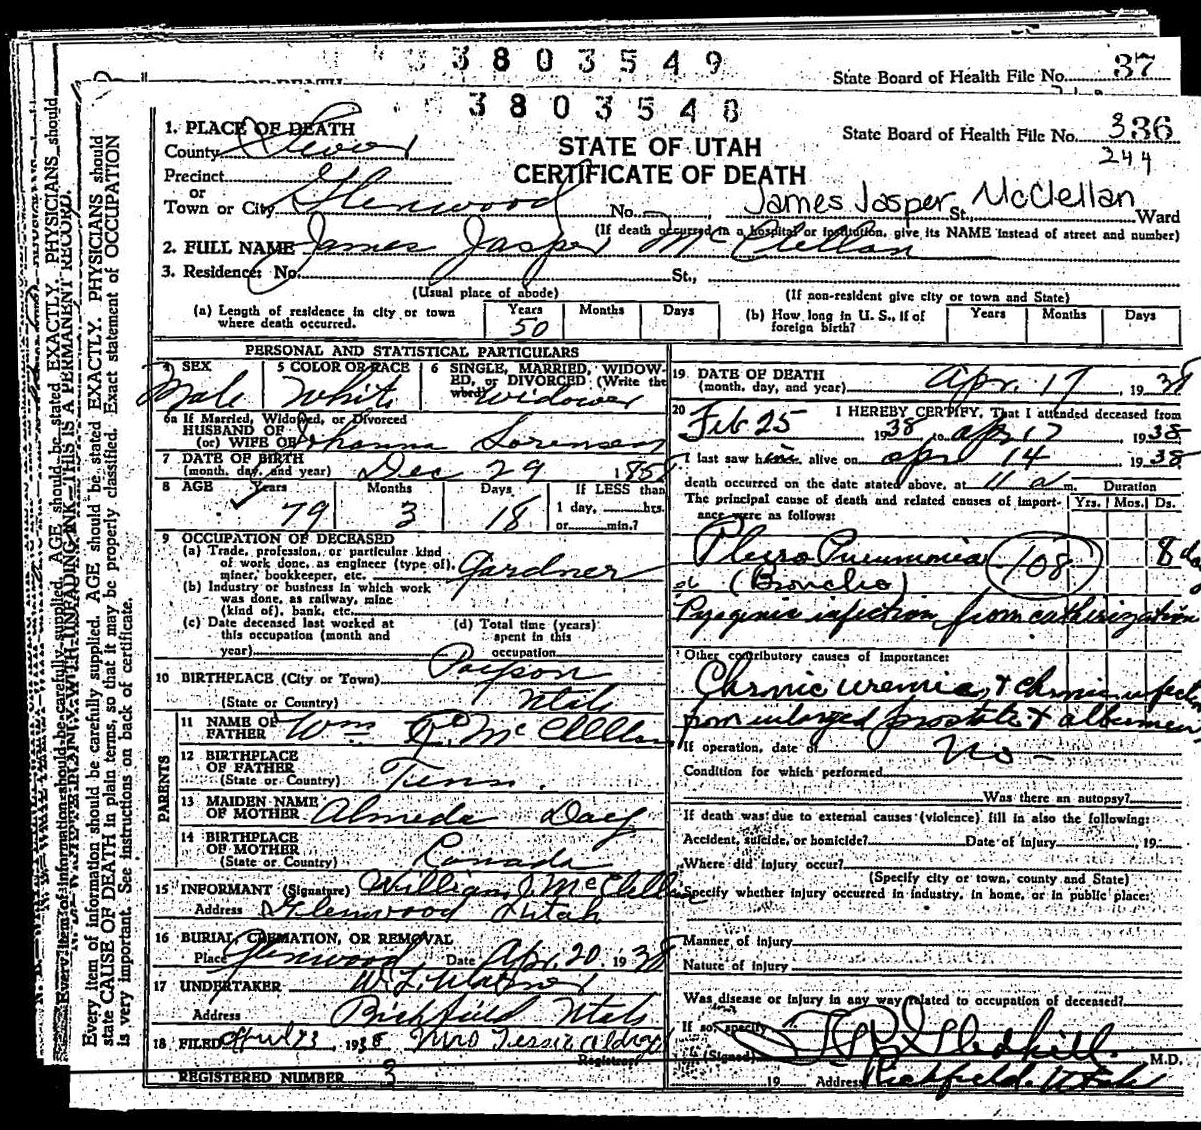 3803549
State Board of Health File No. 37
3803548
State Board of Health File No. 336
244
1. PLACE OF DEATH
County Sevier
STATE OF UTAH
CERTIFICATE OF DEATH
Precinct
or
Town or City Glenwood No. James Jasper St., McClellan Ward
(If death occurred in a hospital or institution, give its NAME instead of street and number)
2. FULL NAME James Jasper McClellan
3. Residence: No. St.,
(Usual place of abode) (If non-resident give city or town and State)
(a) Length of residence in city or town where death occurred. Years 50 Months Days
(b) How long in U. S., if of foreign birth? Years Months Days
PERSONAL AND STATISTICAL PARTICULARS
4 SEX Male
5 COLOR OR RACE White
6 SINGLE, MARRIED, WIDOWED, or DIVORCED (Write the word) Widower
6a If Married, Widowed, or Divorced
HUSBAND OF
(or) WIFE OF Johanna Sorensen
7 DATE OF BIRTH
(month, day, and year) Dec 29 1858
8 AGE Years 79 Months 3 Days 18 If LESS than 1 day, hrs. or min.?
9 OCCUPATION OF DECEASED
(a) Trade, profession, or particular kind
of work done, as engineer (type of),
miner, bookkeeper, etc. Gardner
(b) Industry or business in which work
was done, as railway, mine
(kind of), bank, etc.
(c) Date deceased last worked at
this occupation (month and
year)
(d) Total time (years)
spent in this
occupation
10 BIRTHPLACE (City or Town) Payson
(State or Country) Utah
PARENTS
11 NAME OF FATHER Wm C. McClellan
12 BIRTHPLACE OF FATHER
(State or Country) Tenn.
13 MAIDEN NAME OF MOTHER Almeda Day
14 BIRTHPLACE OF MOTHER
(State or Country) Canada
15 INFORMANT (Signature) William J. McClellan
Address Glenwood Utah
16 BURIAL, CREMATION, OR REMOVAL
Place Glenwood Date Apr. 20. 1938
17 UNDERTAKER
Address Richfield Utah
18 FILED April 23, 1938 Mrs Tessie
Registrar
REGISTERED NUMBER 3
19 DATE OF DEATH
(month, day, and year) Apr. 17 1938
20 I HEREBY CERTIFY, That I attended deceased from
Feb 25 1938 to Apr 17 1938
I last saw him alive on Apr 14 1938
death occurred on the date stated above, at 11 a m.
The principal cause of death and related causes of importance were as follows:
Duration
Yrs. Mos. Ds.
Pleuro Pneumonia 108 8 da
(Broncho)
Pyogenic infection from catherization
Other contributory causes of importance:
Chronic uremia, + chronic infection
from enlarged prostate +
If operation, date of No -
Condition for which performed
Was there an autopsy?
If death was due to external causes (violence) fill in also the following:
Accident, suicide, or homicide? Date of injury , 19
Where did injury occur?
(Specify city or town, county and State)
Specify whether injury occurred in industry, in home, or in public place:
Manner of injury
Nature of injury
Was disease or injury in any way related to occupation of deceased?
If so, specify
(Signed) M.D.
19 Address Richfield. Utah
Every item of information should be carefully supplied. AGE should be stated EXACTLY. PHYSICIANS should
state CAUSE OF DEATH in plain terms, so that it may be properly classified. Exact statement of OCCUPATION
is very important. See instructions on back of certificate.